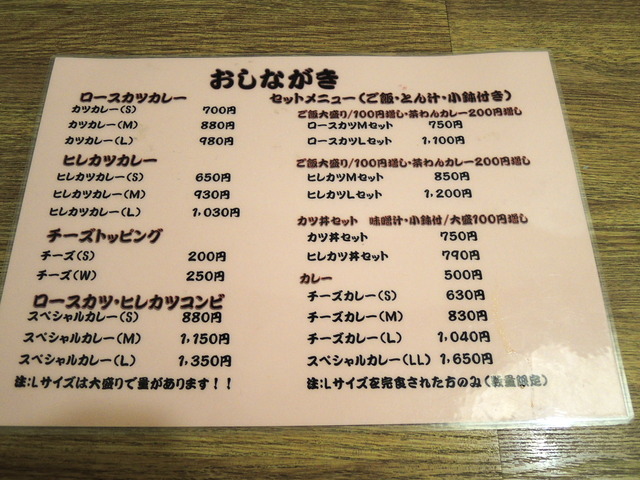 おしながき
ロースカツカレー
カツカレー(S) 700円
カツカレー(M) 880円
カツカレー(L) 980円
ヒレカツカレー
ヒレカツカレー(S) 650円
ヒレカツカレー(M) 930円
ヒレカツカレー(L) 1,030円
チーズトッピング
チーズ(S) 200円
チーズ(W) 250円
ロースカツ・ヒレカツコンビ
スペシャルカレー(S) 880円
スペシャルカレー(M) 1,150円
スペシャルカレー(L) 1,350円
注:Lサイズは大盛りで量があります!!
セットメニュー(ご飯・とん汁・小鉢付き)
ご飯大盛り/100円増し・茶わんカレー200円増し
ロースカツMセット 750円
ロースカツLセット 1,100円
ご飯大盛り/100円増し・茶わんカレー200円増し
ヒレカツMセット 850円
ヒレカツLセット 1,200円
カツ丼セット 味噌汁・小鉢付/大盛100円増し
カツ丼セット 750円
ヒレカツ丼セット 790円
カレー 500円
チーズカレー(S) 630円
チーズカレー(M) 830円
チーズカレー(L) 1,040円
スペシャルカレー(LL) 1,650円
注:Lサイズを完食された方のみ(数量限定)